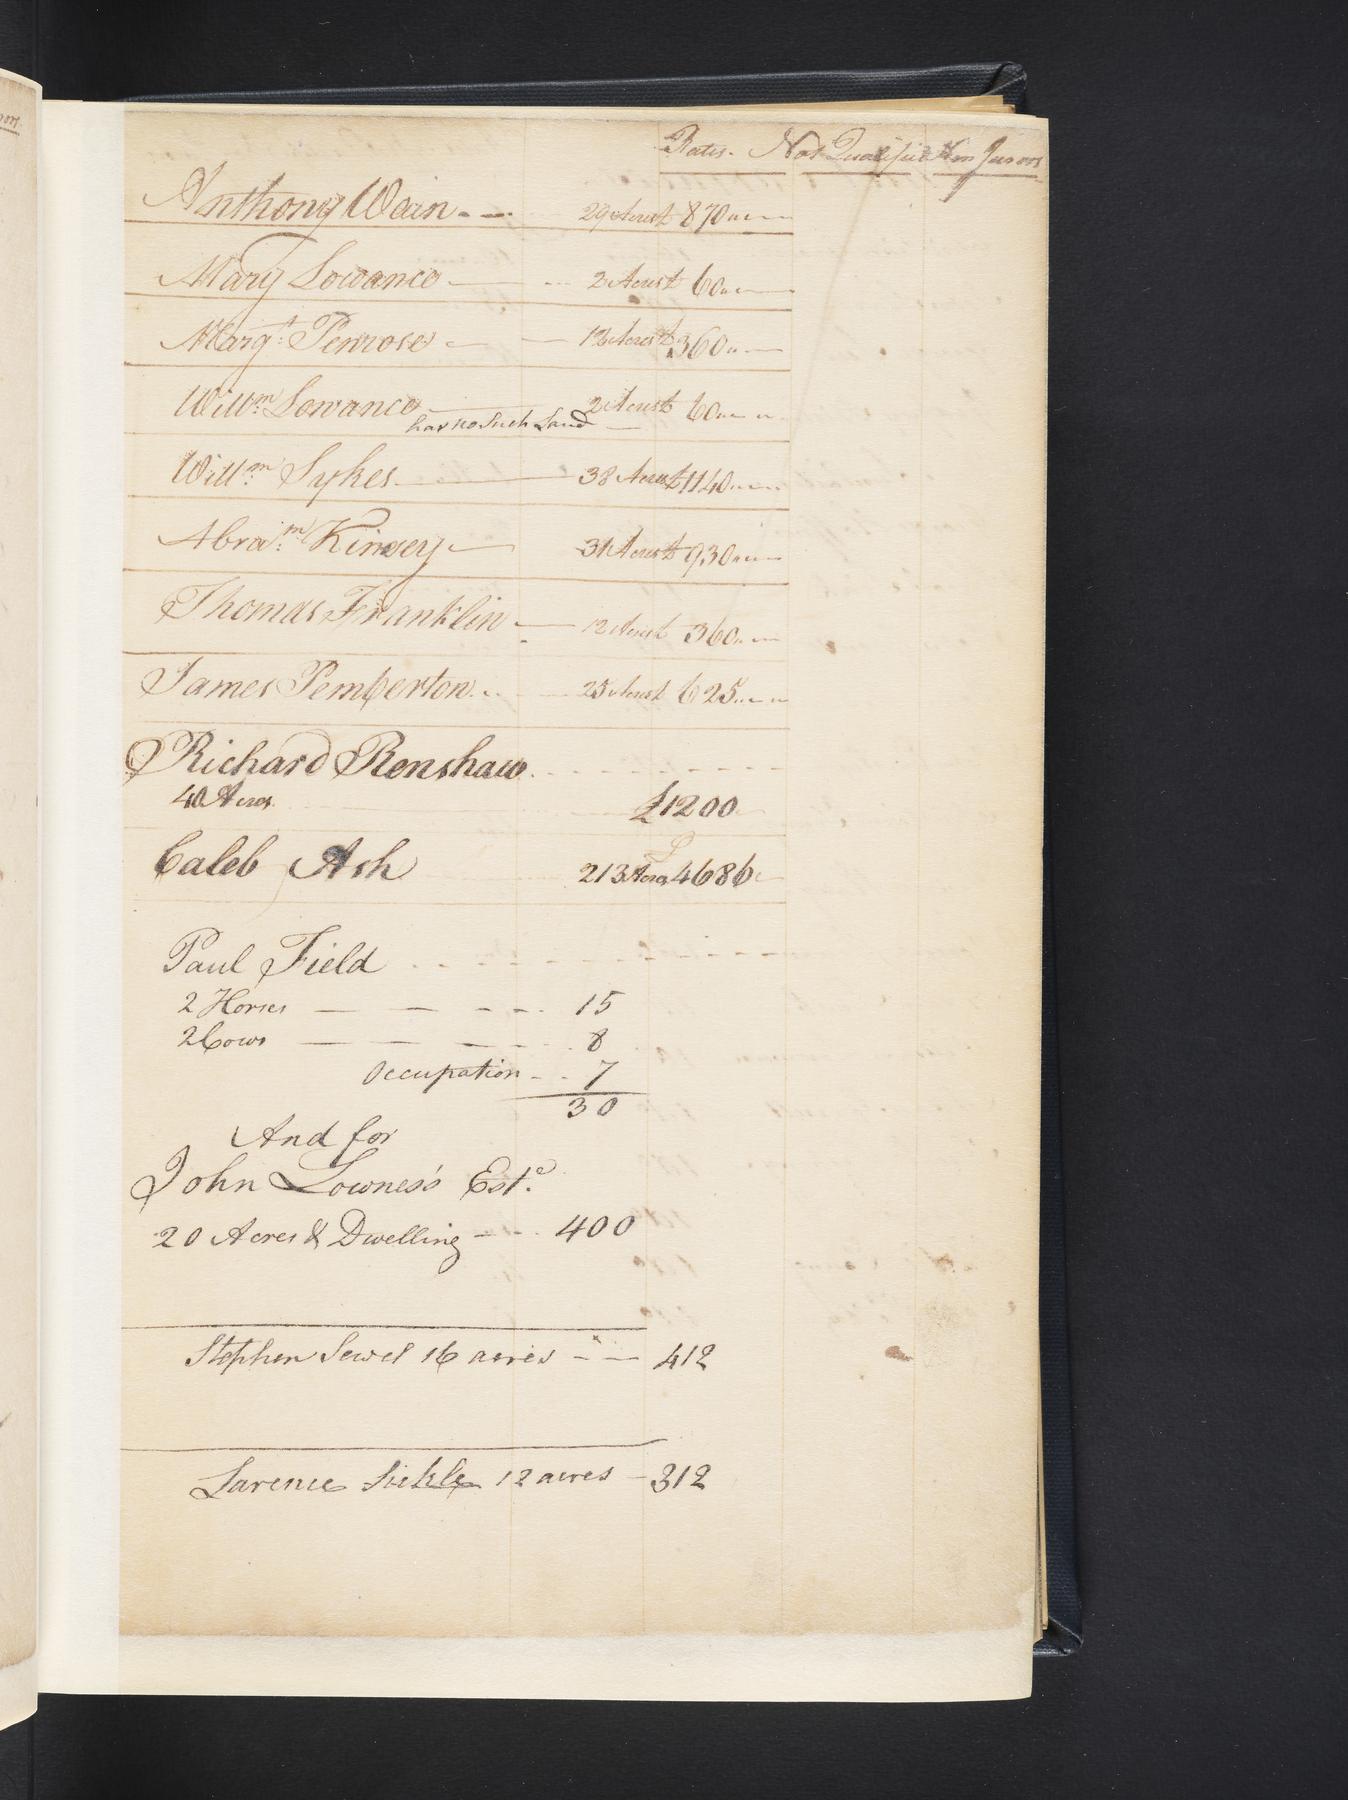 Rates. Not Qualified Non Jurors
Anthony Wain 29 Acres £ 870
Mary Lowance 2 Acres £ 60
Margt. Penrose 12 Acres £ 360
Willm. Lowance 2 Acres £ 60
has no Such Land
Willm. Sykes 38 Acres £ 1140
Abram. Kinsey 31 Acres £ 930
Thomas Franklin 12 Acres £ 360
James Pemberton 25 Acres £ 625
Richard Renshaw
40 Acres £1200
Caleb Ash 213 Acres £ 4686
Paul Field
2 Horses 15
2 Cows 8
Occupation 7
30
And for
John Lowness's Este.
20 Acres & Dwelling 400
Stephen Sewel 16 acres 412
Larence Sickle 12 acres 312